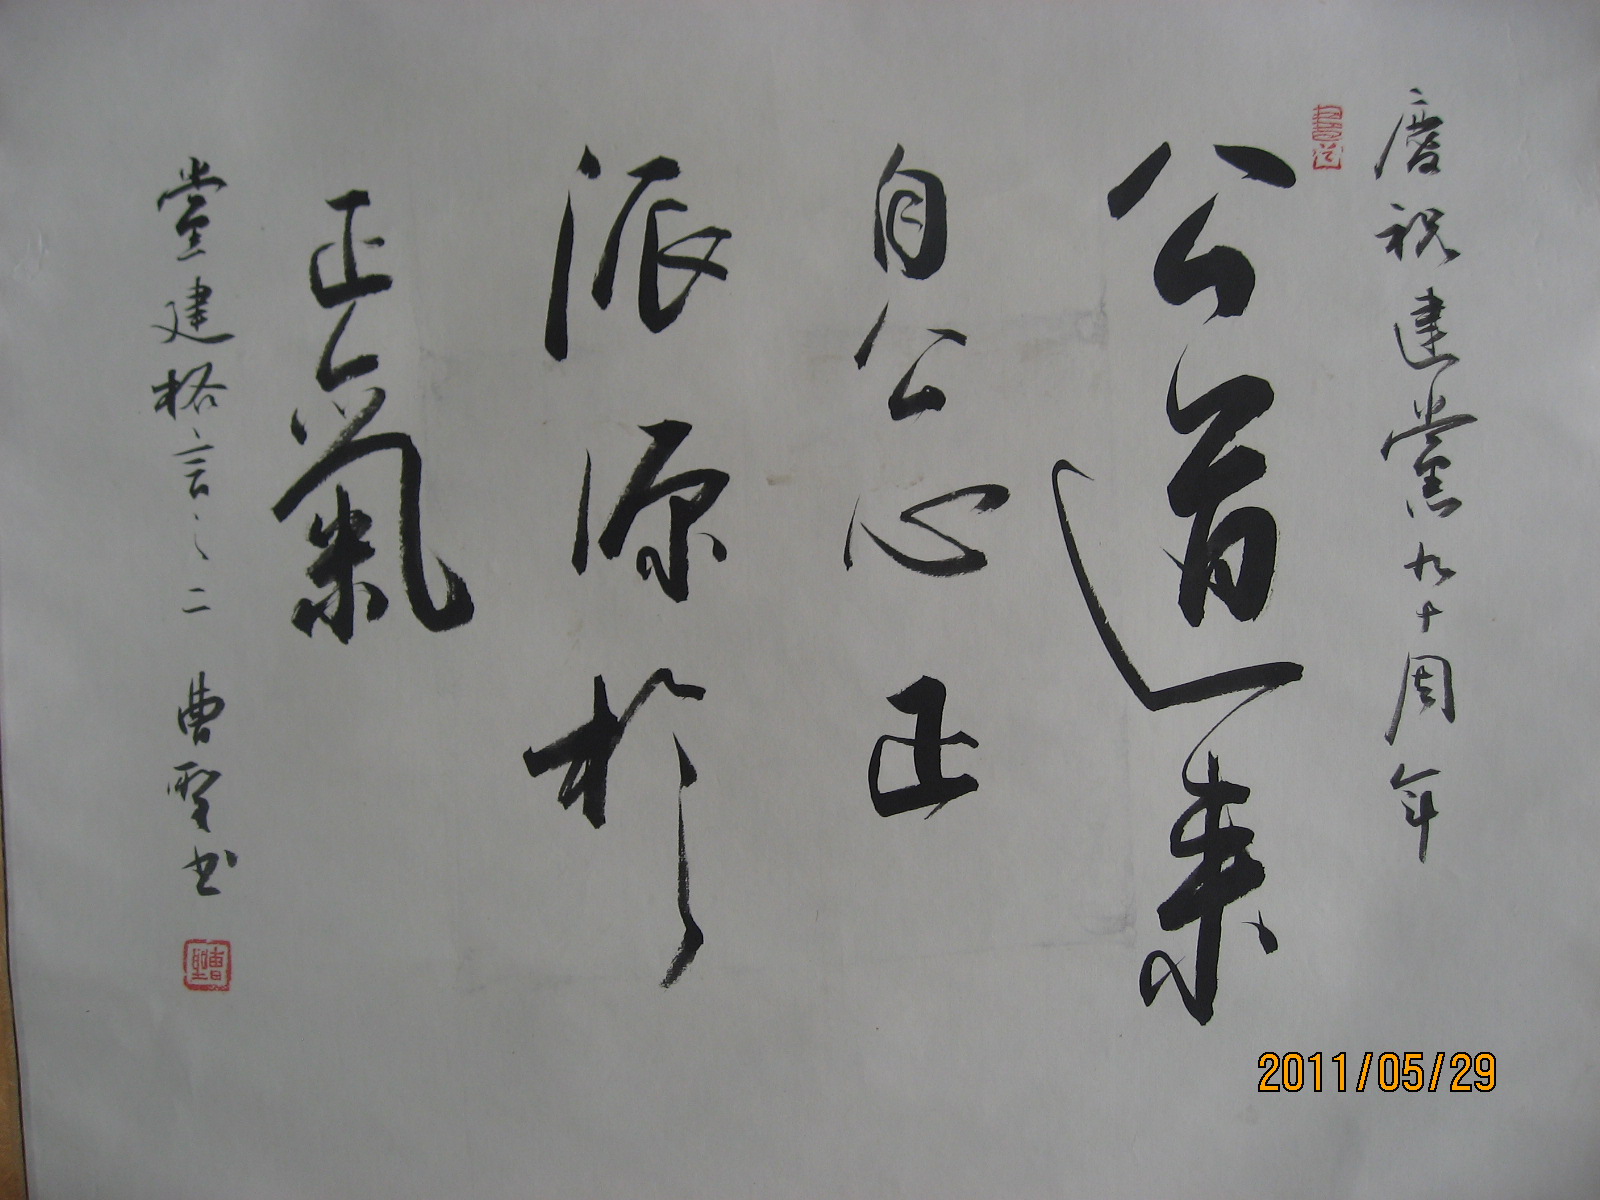 慶祝建黨九十周年
公道来
自公心正
派源於
正氣
党建格言之二 曹聖书
曹聖
2011/05/29